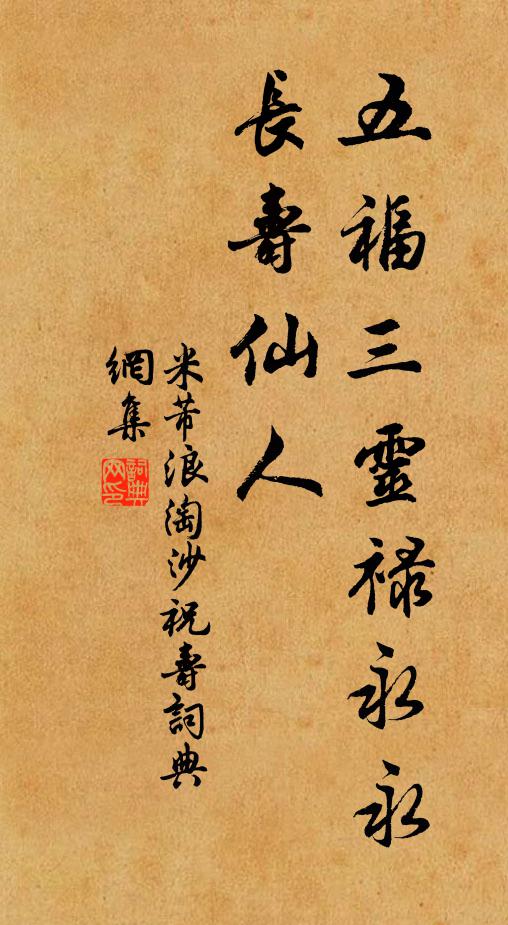 五福三靈祿永永
長壽仙人
米芾浪淘沙祝壽詞典
網集
詞典
网印